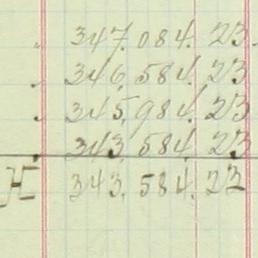 347.084.23
346.584.23
345.984.23
343.584.23
H 343.584.23